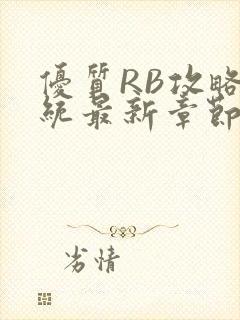 優質RB攻略
統最新章節
劣情